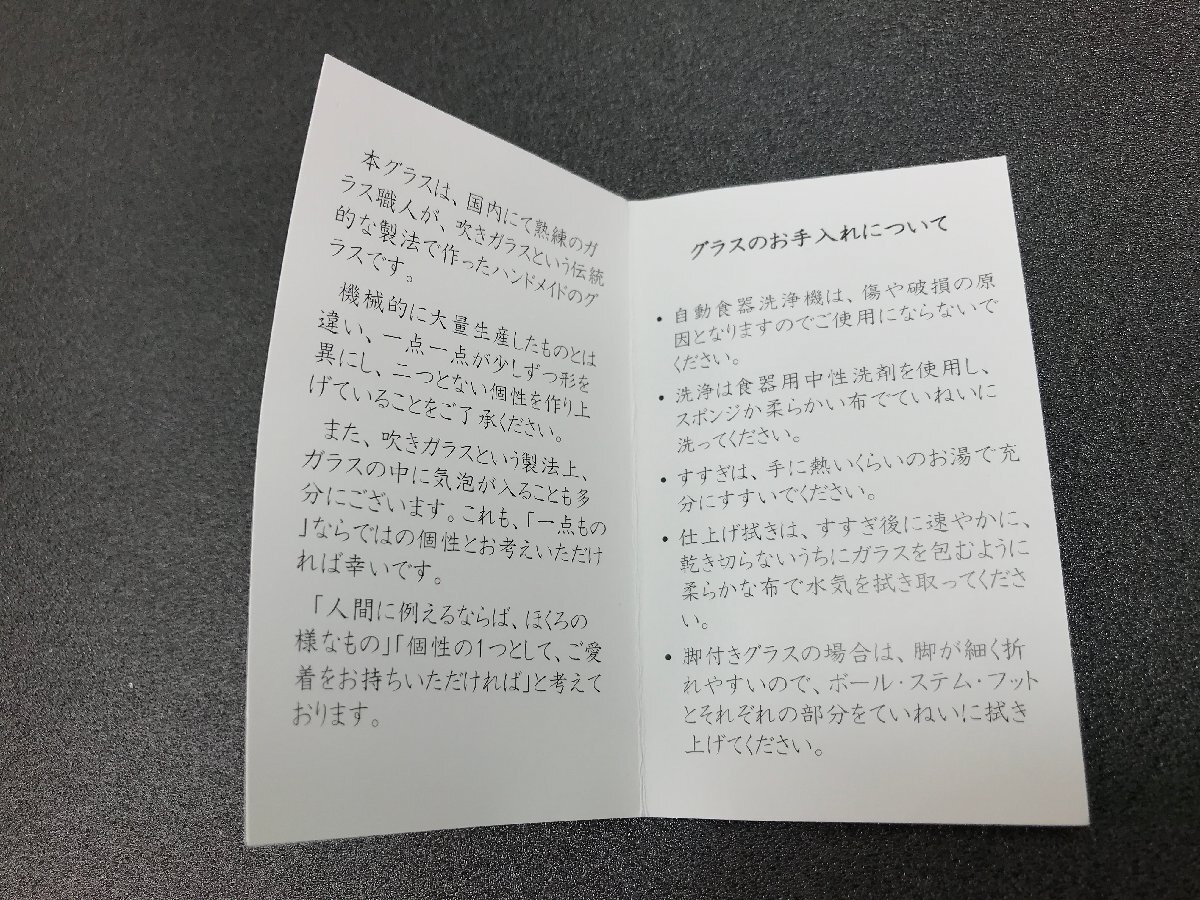 本グラスは、国内にて熟練のガ
ラス職人が、吹きガラスという伝統
的な製法で作ったハンドメイドのグ
ラスです。
機械的に大量生産したものとは
違い、一点一点が少しずつ形を
異にし、二つとない個性を作り上
げていることをご了承ください。
また、吹きガラスという製法上、
ガラスの中に気泡が入ることも多
分にございます。これも、「一点もの
」ならではの個性とお考えいただけ
れば幸いです。
「人間に例えるならば、ほくろの
様なもの」「個性の1つとして、ご愛
着をお持ちいただければ」と考えて
おります。
グラスのお手入れについて
・自動食器洗浄機は、傷や破損の原
因となりますのでご使用にならないで
ください。
・洗浄は食器用中性洗剤を使用し、
スポンジか柔らかい布でていねいに
洗ってください。
・すすぎは、手に熱いくらいのお湯で充
分にすすいでください。
・仕上げ拭きは、すすぎ後に速やかに、
乾き切らないうちにガラスを包むように
柔らかな布で水気を拭き取ってくださ
い。
・脚付きグラスの場合は、脚が細く折
れやすいので、ボール・ステム・フット
とそれぞれの部分をていねいに拭き
上げてください。